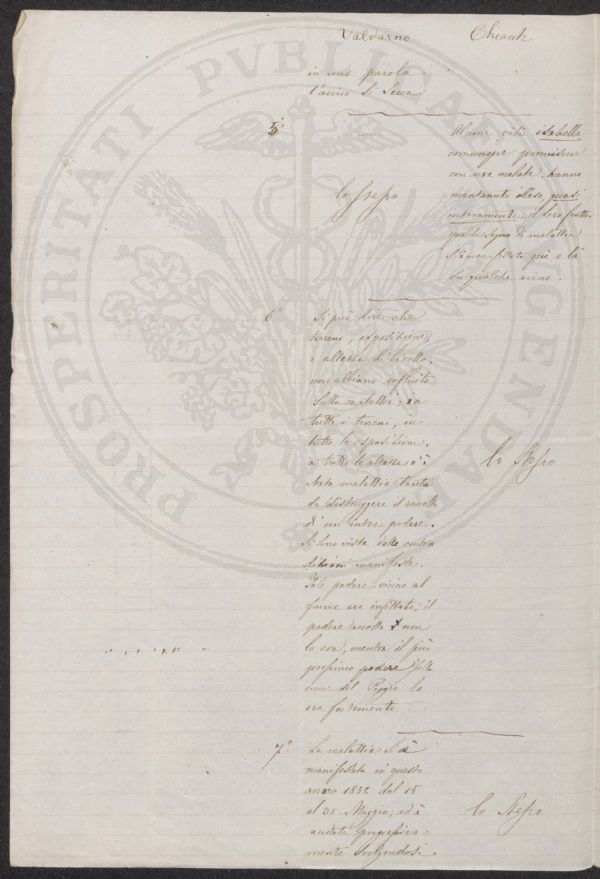 Valdarno
Chianti
in una parola
l'acino si secca
5°
lo stesso
Alcune viti isabella
comunque frammiste
con uve malate, hanno
mantenuto illeso, quasi
interamente, il loro frutto.
qualche segno di malattia
si è manifestato quà e là
su qualche acino.
6°
Si può dire che
terreno, esposizione,
e altezza di livello,
non abbiano influito
sulla malattia; in
tutti i terreni, in
tutte le esposizioni,
a tutte le altezze v'è
stata malattia tanta
da distruggere il raccolto
di un intero podere.
Si sono viste delle contra
dizioni manifeste.
Tale podere vicino al
fiume era infettato; il
podere accosto non
lo era, mentre il più
prossimo podere sulla
cima del Poggio lo
era fortemente.
lo stesso
7°
La malattia si è
manifestata in questo
anno 1852 dal 15
al 31 Maggio; ed è
andata progressiva=
mente svolgendosi.
lo stesso
PROSPERITATI PVBLICAE AVGENDAE